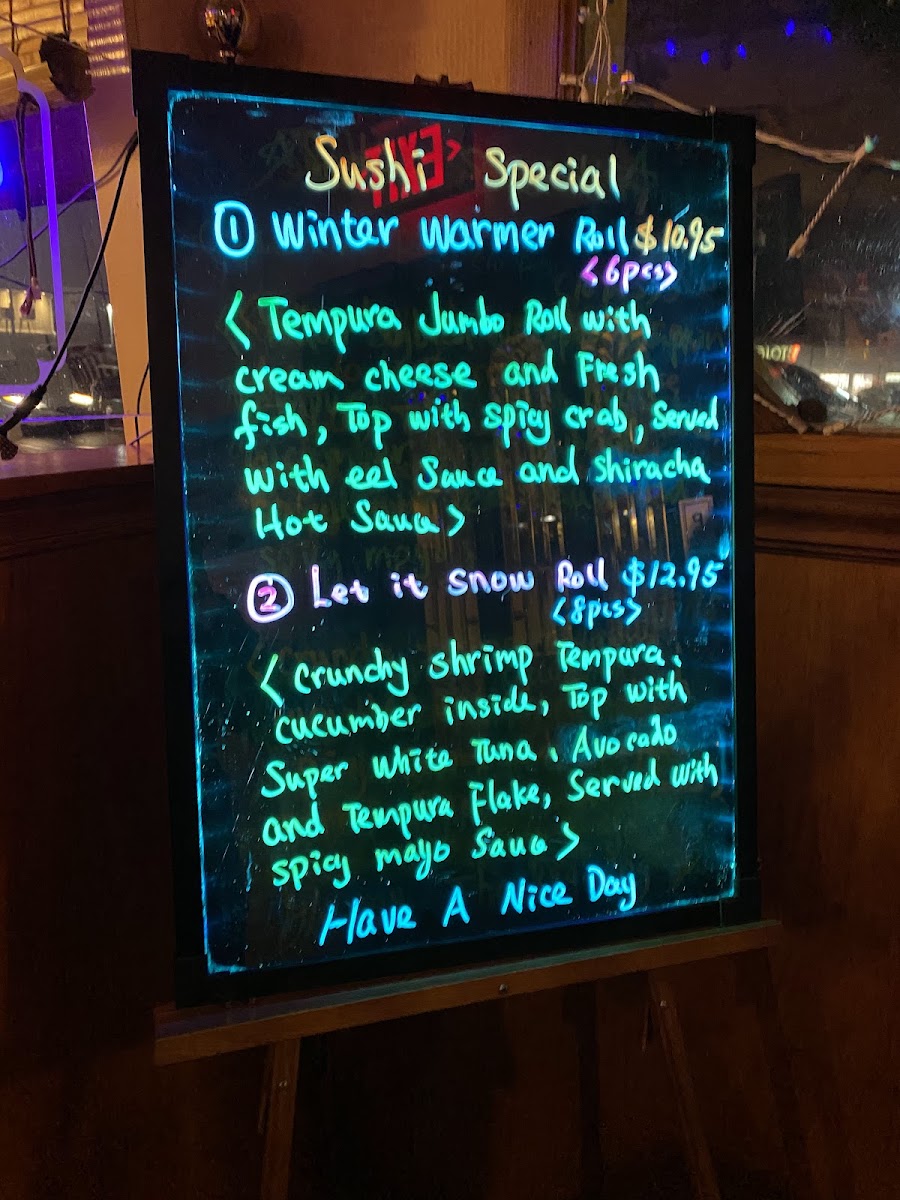 Sushi Special
① Winter Warmer Roll $10.95
<6pcs>
< Tempura Jumbo Roll with
cream cheese and Fresh
fish, Top with spicy crab, Served
with eel Sauce and Shiracha
Hot Sauce>
② Let it snow Roll $12.95
<8pcs>
< Crunchy shrimp Tempura,
cucumber inside, Top with
Super White Tuna, Avocado
and Tempura Flake, Served with
spicy mayo Sauce>
Have A Nice Day
EXIT